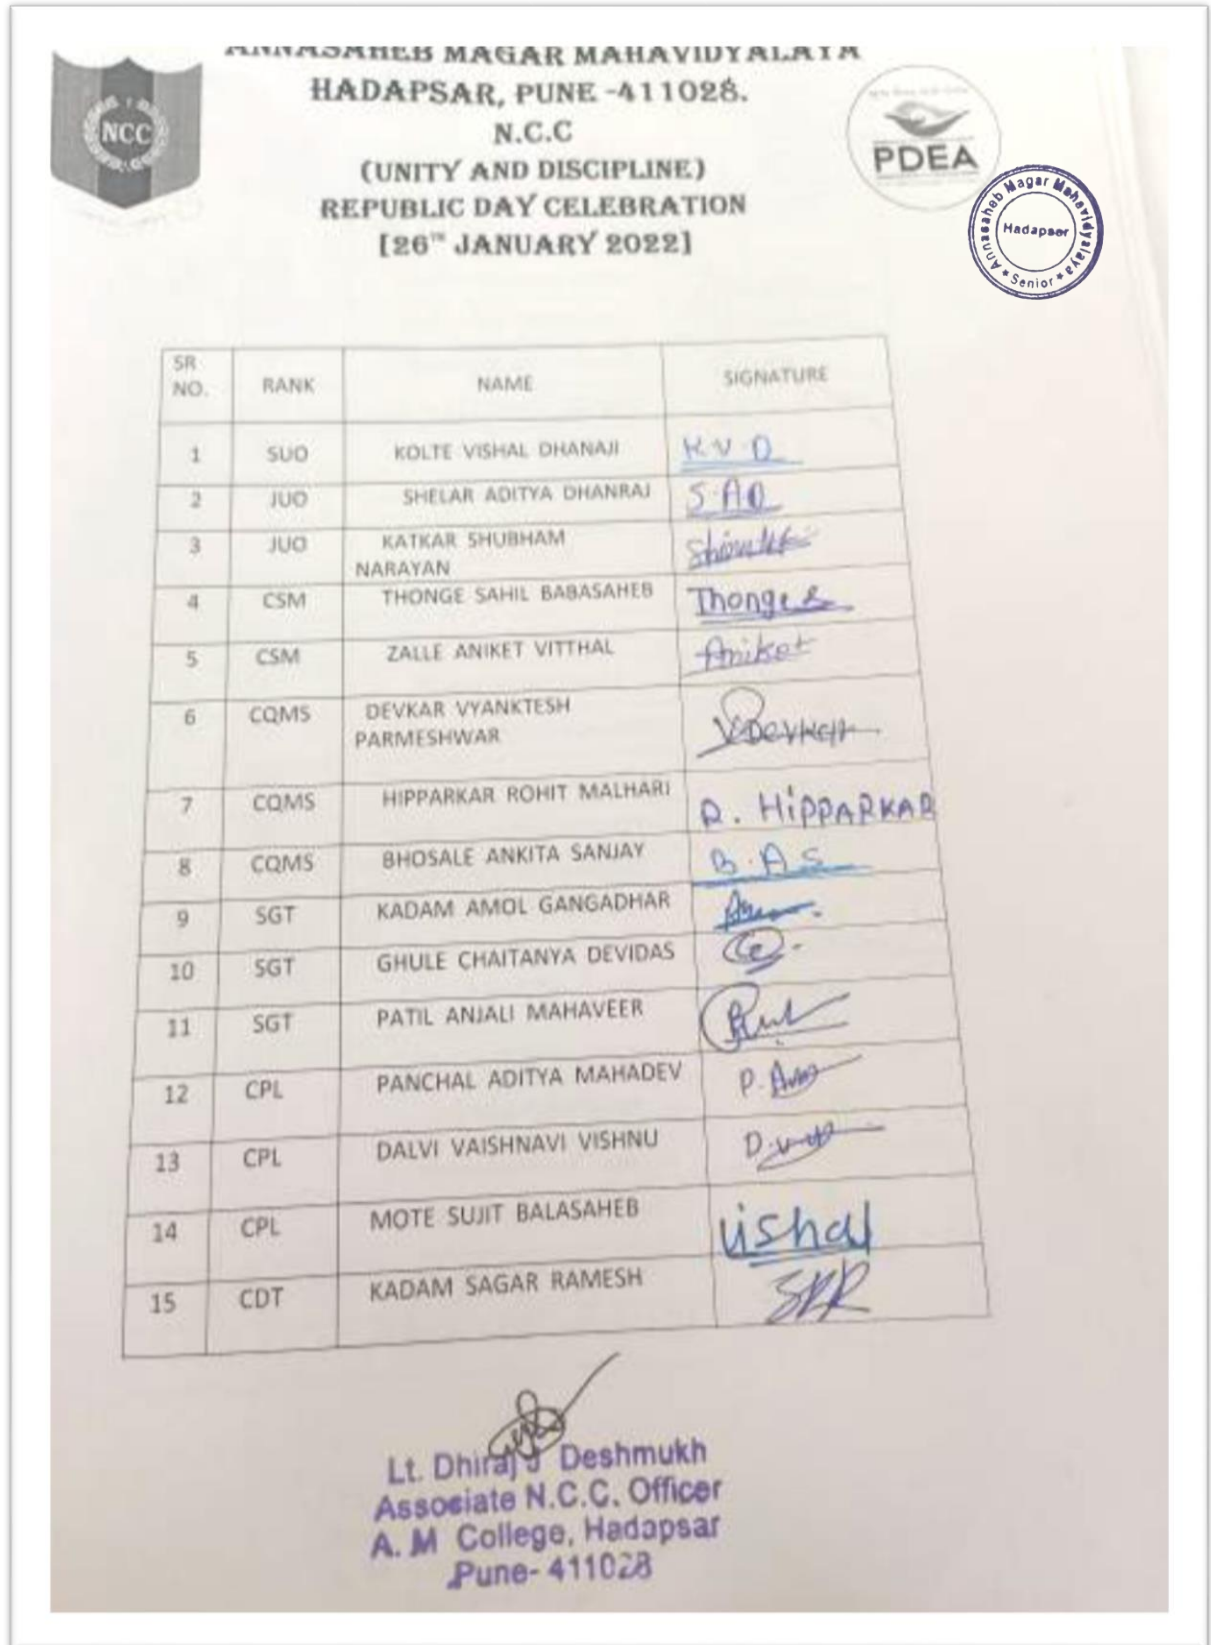 ANNASAHEB MAGAR MAHAVIDYALAYA
HADAPSAR, PUNE -411028.
N.C.C
(UNITY AND DISCIPLINE)
REPUBLIC DAY CELEBRATION
[26TH JANUARY 2022]
NCC
PDEA
Annasaheb Magar Mahavidyalaya
Hadapser
★ Senior ★
SR NO. RANK NAME SIGNATURE
1 SUO KOLTE VISHAL DHANAJI K.V.D
2 JUO SHELAR ADITYA DHANRAJ S.A.D
3 JUO KATKAR SHUBHAM
NARAYAN
4 CSM THONGE SAHIL BABASAHEB Thonge
5 CSM ZALLE ANIKET VITTHAL Aniket
6 CQMS DEVKAR VYANKTESH
PARMESHWAR
7 CQMS HIPPARKAR ROHIT MALHARI R. HIPPARKAR
8 CQMS BHOSALE ANKITA SANJAY B.A.S
9 SGT KADAM AMOL GANGADHAR
10 SGT GHULE CHAITANYA DEVIDAS
11 SGT PATIL ANJALI MAHAVEER
12 CPL PANCHAL ADITYA MAHADEV
13 CPL DALVI VAISHNAVI VISHNU
14 CPL MOTE SUJIT BALASAHEB Vishal
15 CDT KADAM SAGAR RAMESH SKR
Lt. Dhiraj J Deshmukh
Assosiate N.C.C. Officer
A. M College, Hadapsar
Pune- 411028